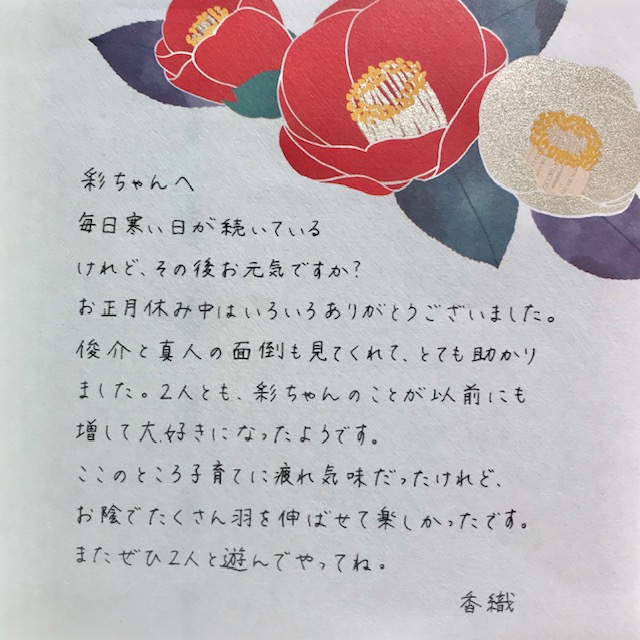 彩ちゃんへ
毎日寒い日が続いている
けれど、その後お元気ですか?
お正月休み中はいろいろありがとうございました。
俊介と真人の面倒も見てくれて、とても助かり
ました。2人とも、彩ちゃんのことが以前にも
増して大好きになったようです。
ここのところ子育てに疲れ気味だったけれど、
お陰でたくさん羽を伸ばせて楽しかったです。
またぜひ2人と遊んでやってね。
香織